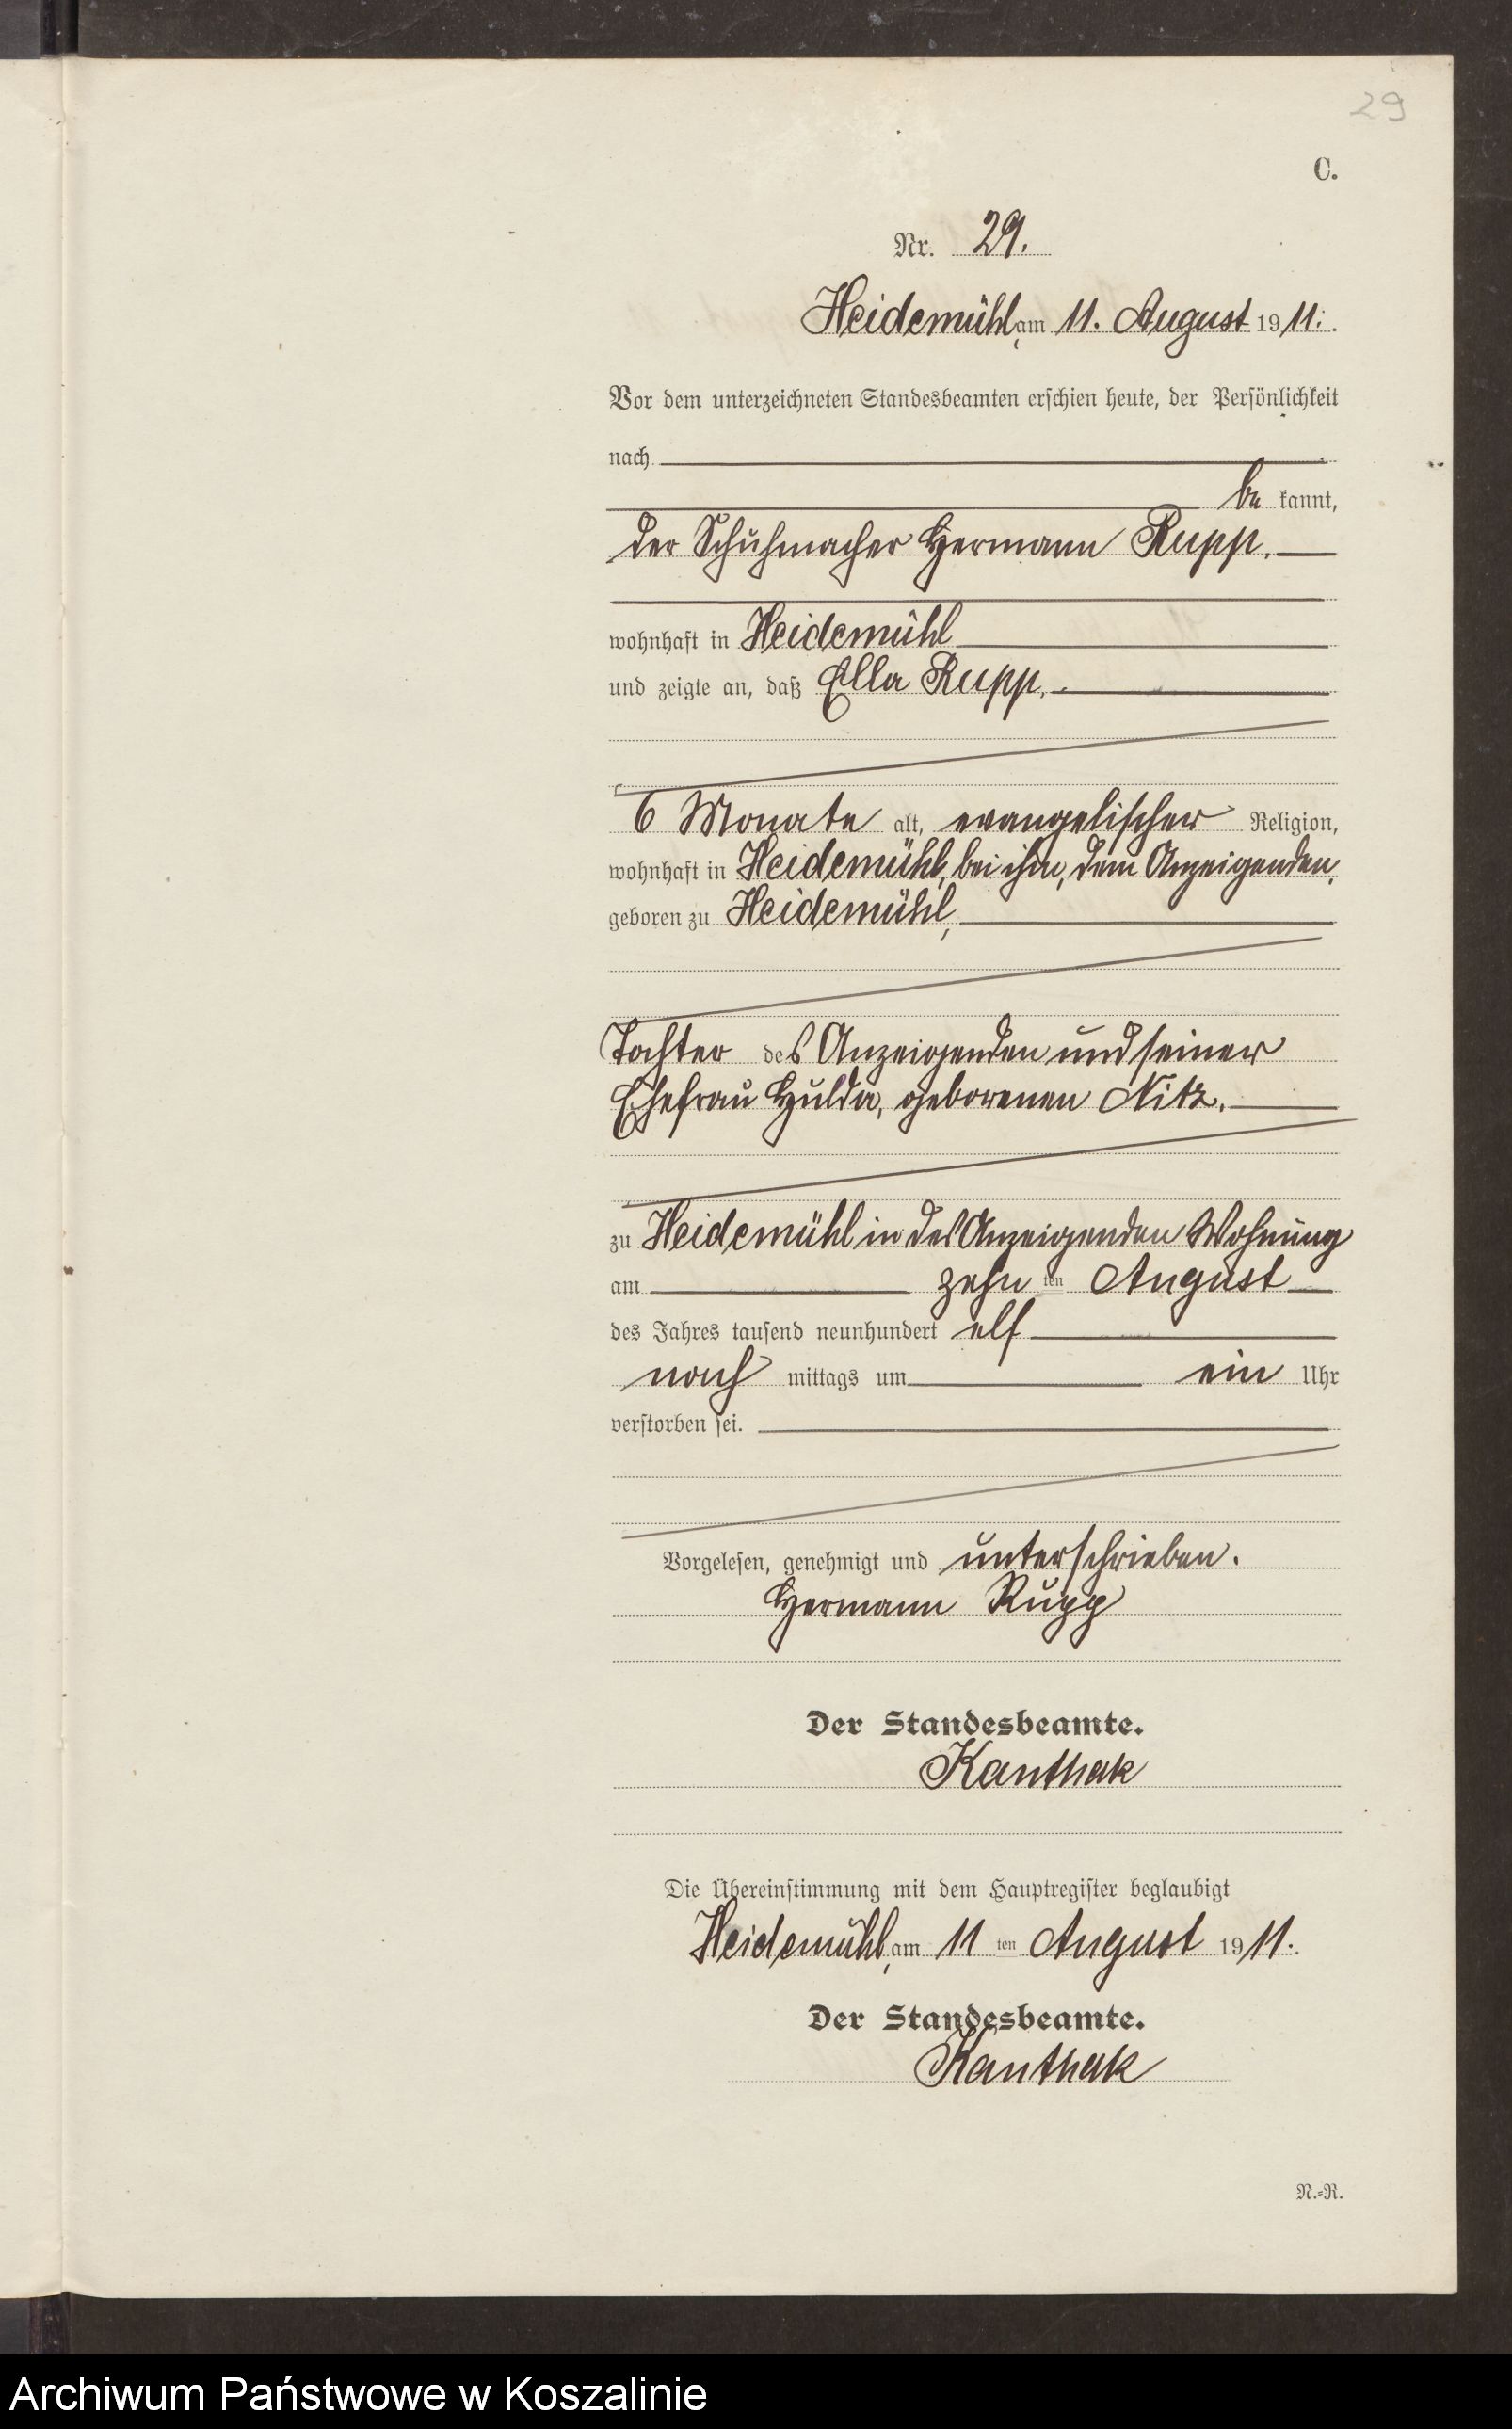 29
C.
Nr. 29.
Heidemühl, am 11. August 1911.
Vor dem unterzeichneten Standesbeamten erschien heute, der Persönlichkeit
nach
be kannt,
der Schuhmacher Hermann Rupp.
wohnhaft in Heidemühl
und zeigte an, daß Ella Rupp,
6 Monate alt, evangelischer Religion,
wohnhaft in Heidemühl, bei ihm, dem Anzeigenden,
geboren zu Heidemühl,
Tochter des Anzeigenden und seiner
Ehefrau Hulda, geborenen Nitz.
zu Heidemühl in des Anzeigenden Wohnung
am zehn ten August
des Jahres tausend neunhundert elf
nach mittags um ein Uhr
verstorben sei.
Vorgelesen, genehmigt und unterschrieben.
Hermann Rupp
Der Standesbeamte.
Kanthak
Die Übereinstimmung mit dem Hauptregister beglaubigt
Heidemühl, am 11 ten August 1911.
Der Standesbeamte.
Kanthak
N.-R.
Archiwum Państwowe w Koszalinie